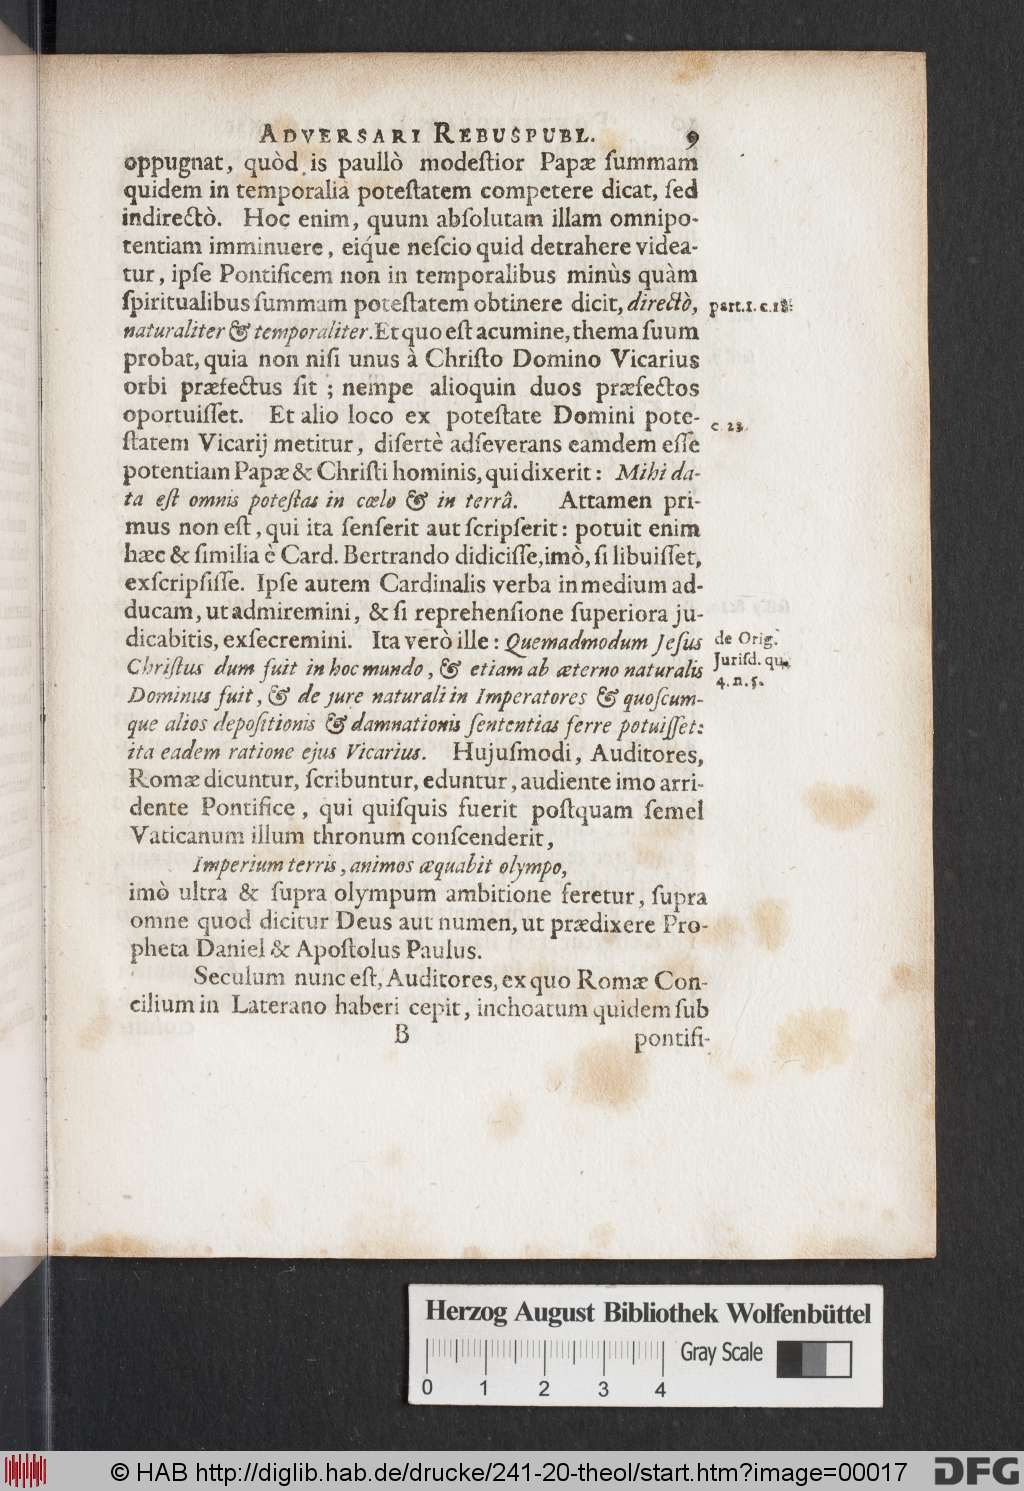 ADVERSARI REBUSPUBL. 9
oppugnat, quòd is paullò modeſtior Papæ ſummam
quidem in temporalia poteſtatem competere dicat, ſed
indirectò. Hoc enim, quum abſolutam illam omnipo-
tentiam imminuere, eiq́ue neſcio quid detrahere videa-
tur, ipſe Pontificem non in temporalibus minùs quàm
ſpiritualibus ſummam poteſtatem obtinere dicit, directò, part.1. c.18.
naturaliter & temporaliter. Et quo eſt acumine, thema ſuum
probat, quia non niſi unus à Chriſto Domino Vicarius
orbi præfectus ſit ; nempe alioquin duos præfectos
oportuiſſet. Et alio loco ex poteſtate Domini pote- c. 23.
ſtatem Vicarij metitur, diſertè adſeverans eamdem eſſe
potentiam Papæ & Chriſti hominis, qui dixerit : Mihi da-
ta eſt omnis poteſtas in cœlo & in terrâ. Attamen pri-
mus non eſt, qui ita ſenſerit aut ſcripſerit : potuit enim
hæc & ſimilia è Card. Bertrando didiciſſe, imò, ſi libuiſſet,
exſcripſiſſe. Ipſe autem Cardinalis verba in medium ad-
ducam, ut admiremini, & ſi reprehenſione ſuperiora ju-
dicabitis, exſecremini. Ita verò ille : Quemadmodum Jeſus de Orig.
Chriſtus dum fuit in hoc mundo, & etiam ab æterno naturalis Jurisd. qu.
Dominus fuit, & de jure naturali in Imperatores & quoſcum- 4. n. 5.
que alios depoſitionis & damnationis ſententias ferre potuiſſet:
ita eadem ratione ejus Vicarius. Hujuſmodi, Auditores,
Romæ dicuntur, ſcribuntur, eduntur, audiente imo arri-
dente Pontifice, qui quiſquis fuerit poſtquam ſemel
Vaticanum illum thronum conſcenderit,
Imperium terris, animos æquabit olympo,
imò ultra & ſupra olympum ambitione feretur, ſupra
omne quod dicitur Deus aut numen, ut prædixere Pro-
pheta Daniel & Apoſtolus Paulus.
Seculum nunc eſt, Auditores, ex quo Romæ Con-
cilium in Laterano haberi cepit, inchoatum quidem ſub
B pontifi-
Herzog August Bibliothek Wolfenbüttel
Gray Scale
0 1 2 3 4
© HAB http://diglib.hab.de/drucke/241-20-theol/start.htm?image=00017 DFG